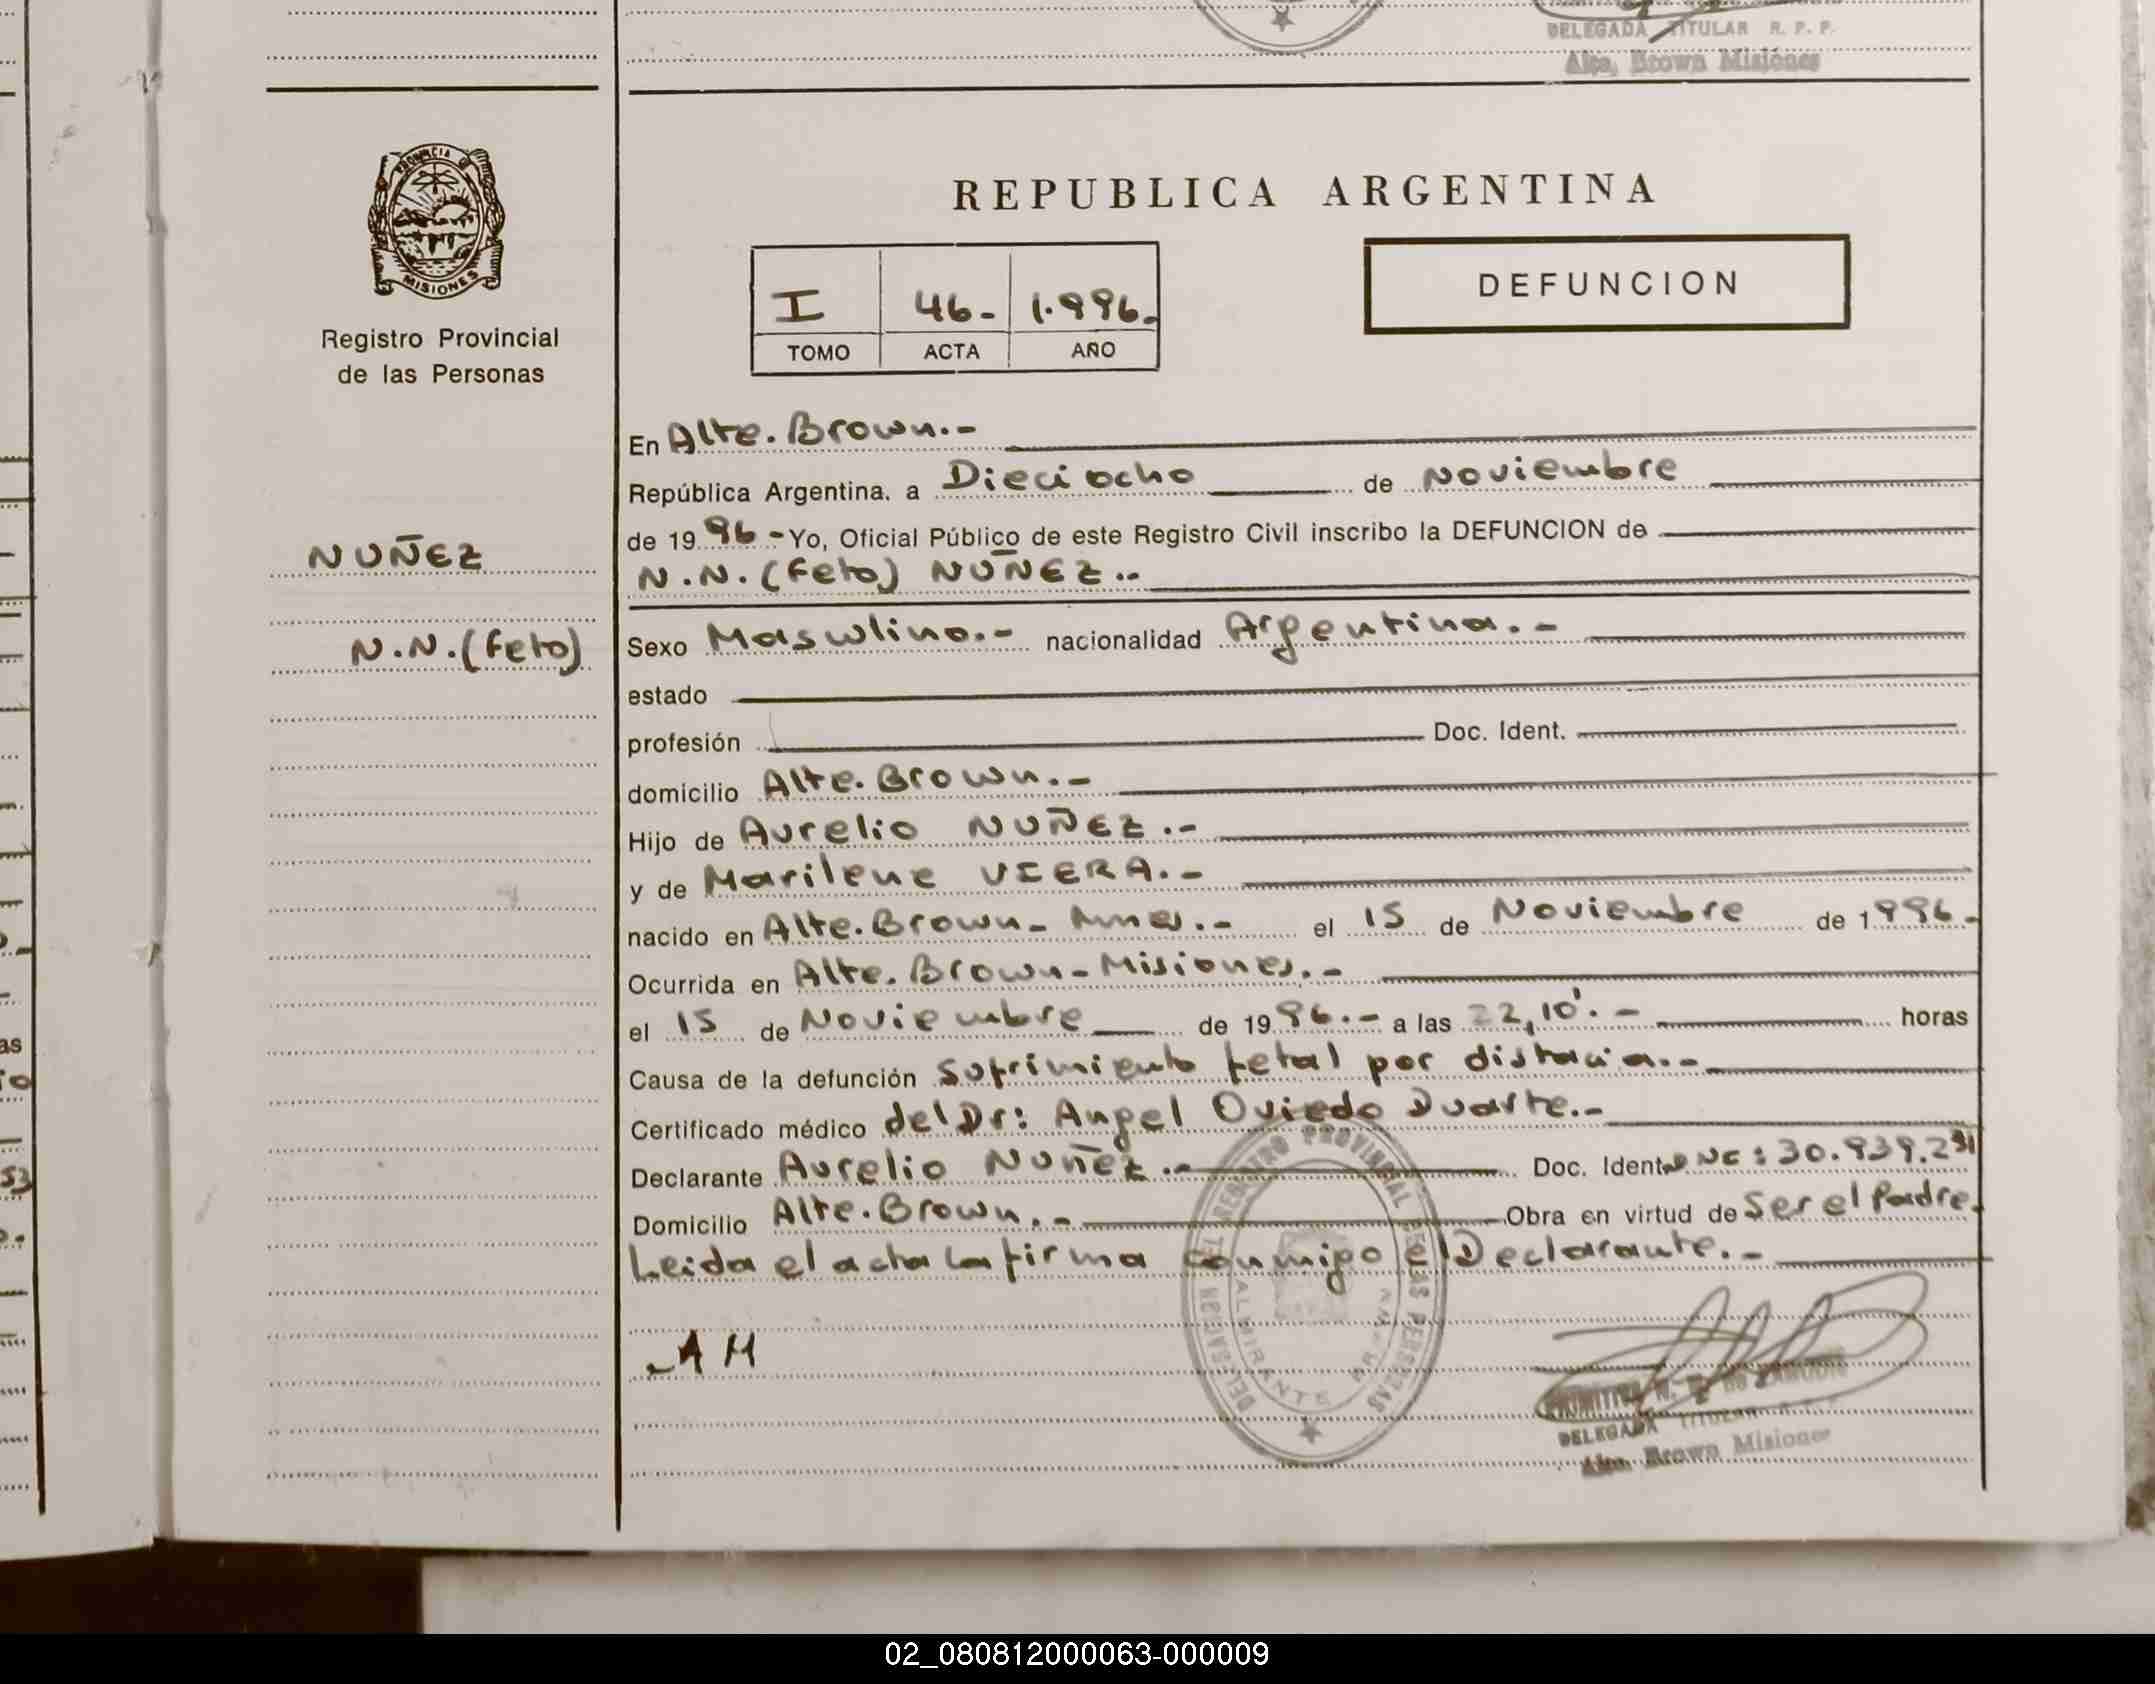 DELEGADA TITULAR R. P. P.
Alte. Brown Misiones
PROVINCIA DE
MISIONES
Registro Provincial
de las Personas
REPUBLICA ARGENTINA
I 46- 1.996.
TOMO ACTA AÑO
DEFUNCION
En Alte. Brown.-
República Argentina. a Dieciocho de Noviembre
de 1996 - Yo, Oficial Público de este Registro Civil inscribo la DEFUNCION de
NUÑEZ
N.N. (Feto) NUÑEZ..
N.N. (Feto)
Sexo Masculino.- nacionalidad Argentina.-
estado
profesión Doc. Ident.
domicilio Alte. Brown.-
Hijo de Aurelio NUÑEZ.-
y de Marilene VIERA.-
nacido en Alte. Brown - Mnes.- el 15 de Noviembre de 1996.
Ocurrida en Alte. Brown - Misiones.-
el 15 de Noviembre de 1996.- a las 22,10'.- horas
Causa de la defunción Sufrimiento fetal por distocia.-
Certificado médico del Dr: Angel Oviedo Duarte.-
Declarante Aurelio Nuñez.- Doc. Ident. 30.939.291
Domicilio Alte. Brown.- Obra en virtud de Ser el Padre.
Leida el acta la firma conmigo el Declarante.-
DELEGACION DEL REGISTRO PROVINCIAL DE LAS PERSONAS
ALMIRANTE BROWN
DELEGADA TITULAR R. P. P.
Alte. Brown Misiones
02_080812000063-000009